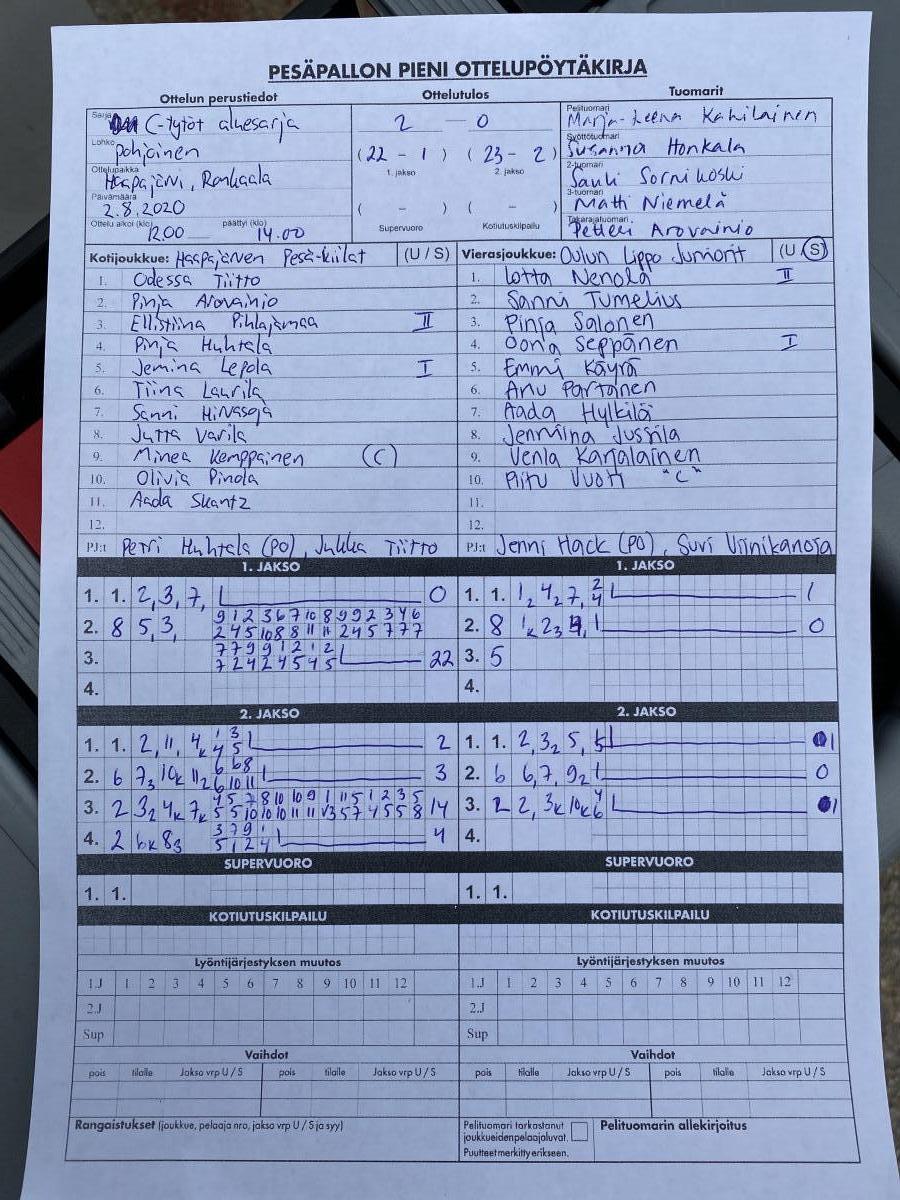 PESÄPALLON PIENI OTTELUPÖYTÄKIRJA
Ottelun perustiedot Ottelutulos Tuomarit
Sarja C-tytöt aluesarja
Lohko pohjoinen
Ottelupaikka Haapajärvi, Ronkaala
Päivämäärä 2.8.2020
Ottelu alkoi (klo) 12.00 päättyi (klo) 14.00
2 — 0
(22 - 1) (23 - 2)
1. jakso 2. jakso
( - ) ( - )
Supervuoro Kotiutuskilpailu
Pelituomari Marja-Leena Kahilainen
Syöttötuomari Susanna Honkala
2-tuomari Sauli Sornikoski
3-tuomari Matti Niemelä
Takarajatuomari Petteri Arovainio
Kotijoukkue: Haapajärven Pesä-kiilat (U / S)
1. Odessa Tiitto
2. Pinja Arovainio
3. Ellistiina Pihlajamaa II
4. Pinja Huhtala
5. Jemina Lepola I
6. Tiina Laurila
7. Sanni Hirvasoja
8. Jutta Varila
9. Minea Kemppainen (C)
10. Olivia Pinola
11. Aada Skantz
12.
PJ:t Petri Huhtala (PO), Jukka Tiitto
Vierasjoukkue: Oulun Lippo Juniorit (U / S)
1. Lotta Nenola II
2. Sanni Tumelius
3. Pinja Salonen
4. Oona Seppänen I
5. Emmi Käyrä
6. Anu Partanen
7. Aada Hylkilä
8. Jenniina Jussila
9. Venla Karjalainen
10. Piitu Vuoti "C"
11.
12.
PJ:t Jenni Hack (PO), Suvi Viinikanoja
1. JAKSO
1. 1. 2, 3, 7, 0
2. 8 5, 3, 9 1 2 3 6 7 10 8 9 9 2 3 4 6
2 4 5 10 8 8 11 11 2 4 5 7 7 7
3. 7 7 9 9 1 2 1 2
7 2 4 2 4 5 4 5 22
4.
1. JAKSO
1. 1. 1, 4, 7, 2 1
4
2. 8 0
3. 5
4.
2. JAKSO
1. 1. 2, 11, 4k 1 3
4 5 2
2. 6 7 10k 11 6 6 8
6 10 11 3
3. 2 3 4k 7k 4 5 7 8 10 10 9 1 11 5 1 2 3 5
5 5 10 10 10 11 11 3 5 7 4 5 5 8 14
4. 2 6k 8 3 7 9 1
5 1 2 4 4
2. JAKSO
1. 1. 2, 3 5, 5 1
2. 6 6, 7, 9 0
3. 2 2, 3k 10k 4
6 1
4.
SUPERVUORO
1. 1.
SUPERVUORO
1. 1.
KOTIUTUSKILPAILU
KOTIUTUSKILPAILU
Lyöntijärjestyksen muutos
1.J 1 2 3 4 5 6 7 8 9 10 11 12
2.J
Sup
Lyöntijärjestyksen muutos
1.J 1 2 3 4 5 6 7 8 9 10 11 12
2.J
Sup
Vaihdot
pois tilalle Jakso vrp U / S pois tilalle Jakso vrp U / S
Vaihdot
pois tilalle Jakso vrp U / S pois tilalle Jakso vrp U / S
Rangaistukset (joukkue, pelaaja nro, jakso vrp U / S ja syy)
Pelituomari tarkastanut
joukkueiden pelaajaluvat.
Puutteet merkitty erikseen.
Pelituomarin allekirjoitus